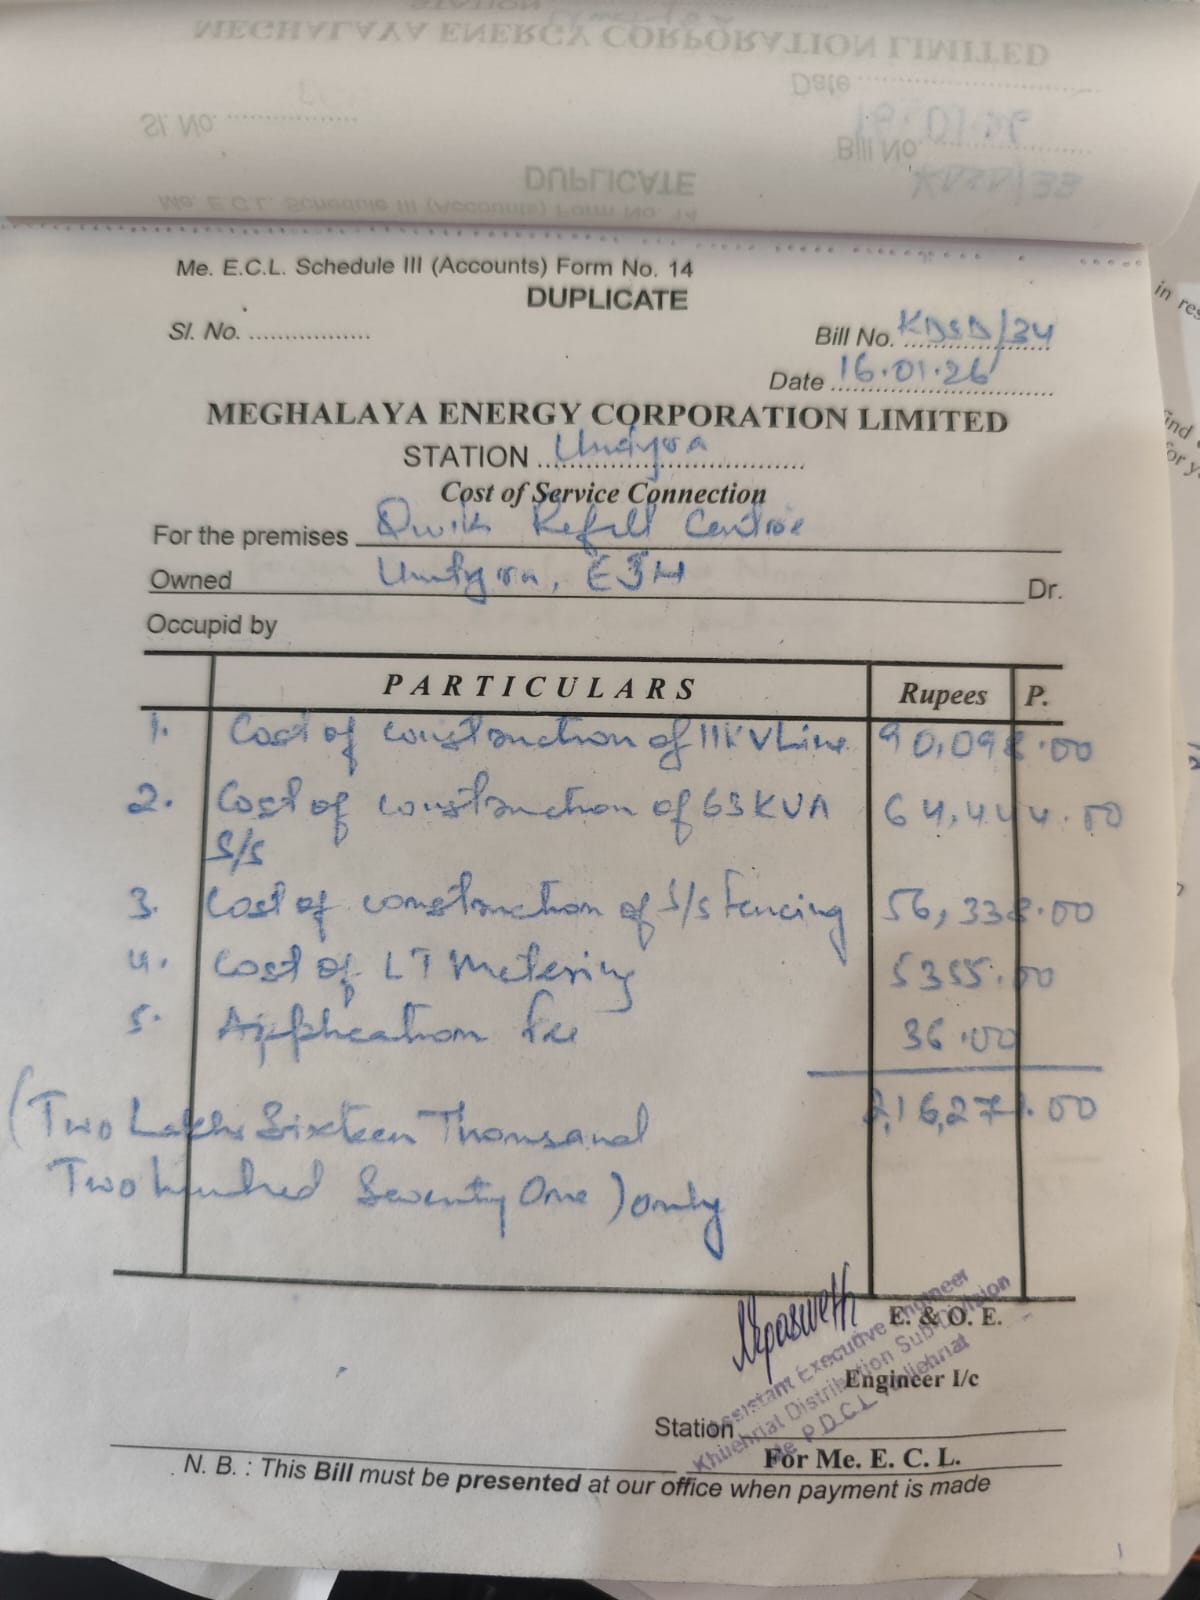 MEGHALAYA ENERGY CORPORATION LIMITED
Date
Sl. No.
Bill No.
KDSD/33
DUPLICATE
Me. E.C.L. Schedule III (Accounts) Form No. 14
Me. E.C.L. Schedule III (Accounts) Form No. 14
DUPLICATE
Sl. No. ..................
Bill No. KDSD/34
Date 16.01.26
MEGHALAYA ENERGY CORPORATION LIMITED
STATION
Cost of Service Connection
For the premises Qwik Refill Centre
Owned EJH Dr.
Occupid by
PARTICULARS Rupees P.
1. Cost of construction of 11KV Line 90,098.00
2. Cost of construction of 63 KVA 64,444.00
S/S
3. Cost of construction of S/S Fencing 56,338.00
4. Cost of LT Metering 5355.00
5. Application fee 36.00
(Two Lakhs Sixteen Thousand 2,16,271.00
Two hundred Seventy One) only
E. & O. E.
Assistant Executive Engineer
Khliehriat Distribution Sub-Division
Me P.D.C.L Khliehriat
Engineer I/c
Station
For Me. E. C. L.
N. B. : This Bill must be presented at our office when payment is made